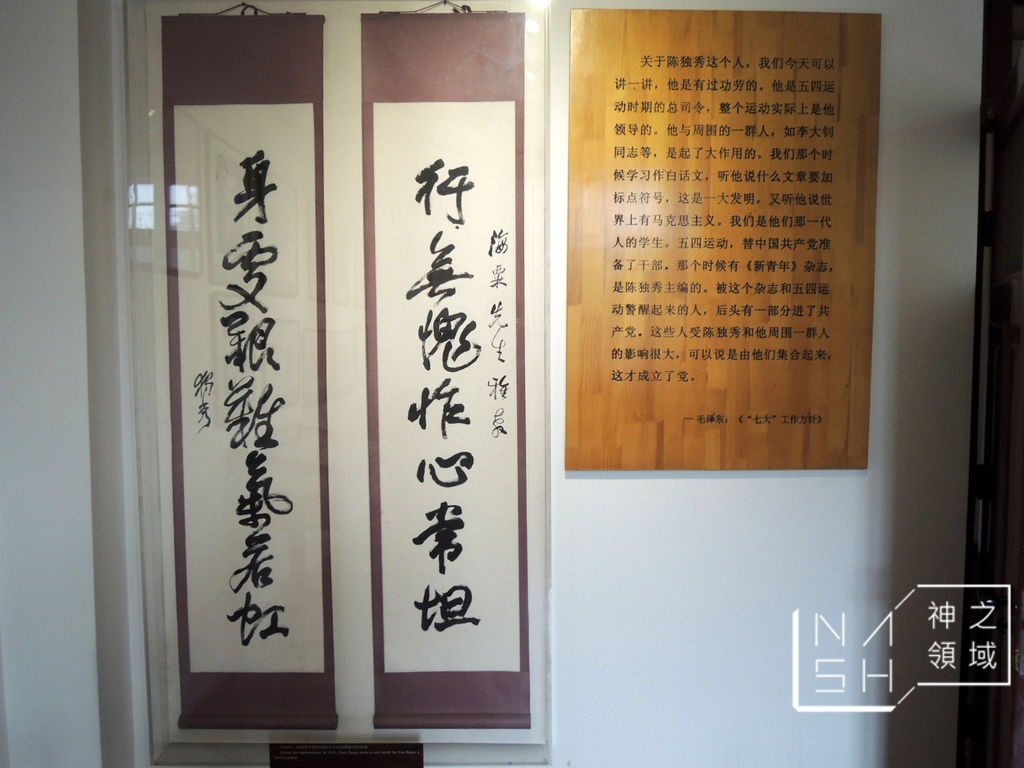 行無愧怍心常坦
海粟先生雅教
身處艱難氣若虹
獨秀
关于陈独秀这个人，我们今天可以
讲一讲，他是有过功劳的。他是五四运
动时期的总司令，整个运动实际上是他
领导的。他与周围的一群人，如李大钊
同志等，是起了大作用的。我们那个时
候学习作白话文，听他说什么文章要加
标点符号，这是一大发明，又听他说世
界上有马克思主义。我们是他们那一代
人的学生。五四运动，替中国共产党准
备了干部。那个时候有《新青年》杂志，
是陈独秀主编的。被这个杂志和五四运
动警醒起来的人，后头有一部分进了共
产党。这些人受陈独秀和他周围一群人
的影响很大，可以说是由他们集合起来，
这才成立了党。
—毛泽东：《“七大”工作方针》
NASH
神之
領域